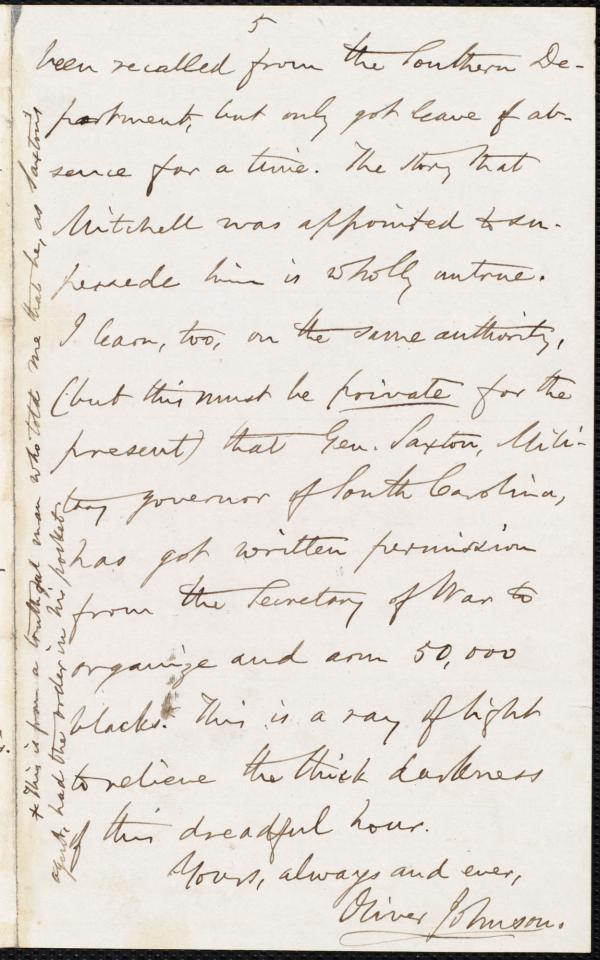 5
been recalled from the Southern De-
partment, but only got leave of ab-
sence for a time. The story that
Mitchell was appointed to su-
persede him is wholly untrue.
I learn, too, on the same authority,
(but this must be private for the
present) that Gen. Saxton, Mili-
tary governor of South Carolina,
has got written permission
from the Secretary of War to
organize and arm 50,000
blacks. This is a ray of light
to relieve the thick darkness
of this dreadful hour.
Yours, always and ever,
Oliver Johnson.
+ This is from a truthful man who told me that he, as Saxton's
agent, had the order in his pocket.